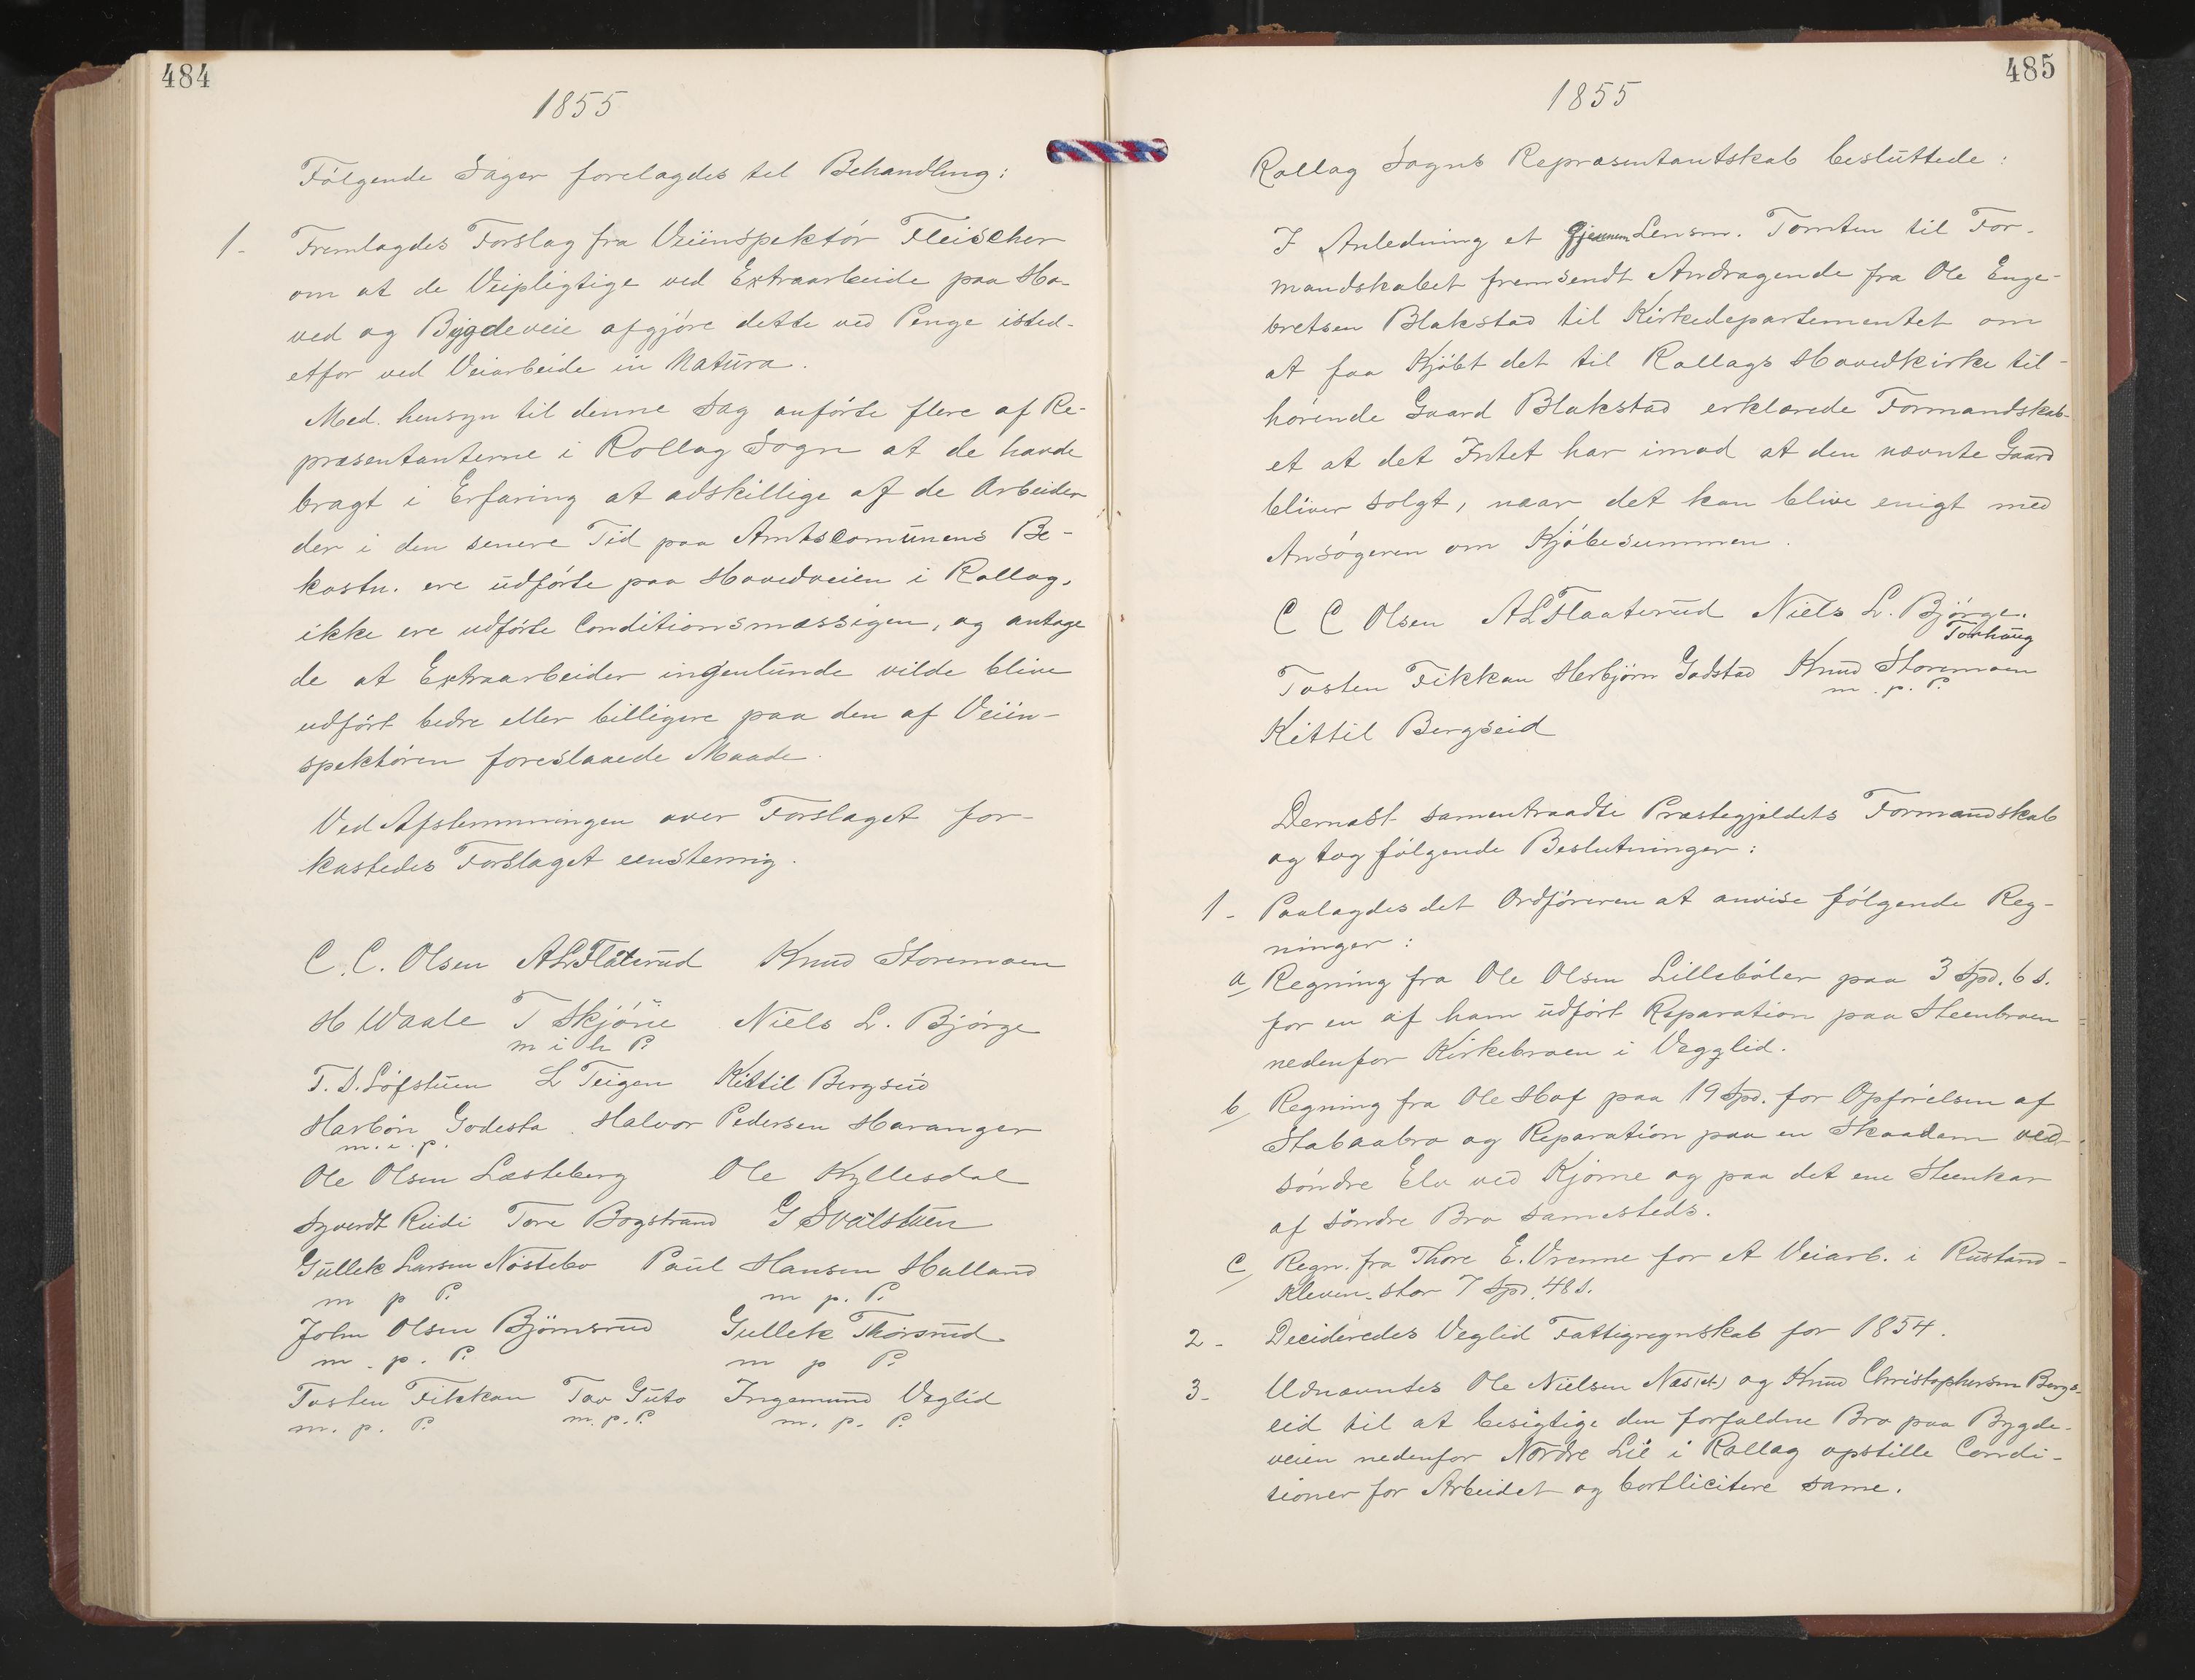 484
1855
Følgende Sager forelagdes til Behandling:
1- Fremlagdes Forslag fra Veiinspektør Fleischer
om at de Veipligtige ved Extraarbeide paa Ho-
ved og Bygdeveie afgjøre dette ved Penge isted-
etfor ved Veiarbeide in Natura.
Med. hensyn til denne Sag anførte flere af Re-
præsentanterne i Rollag Sogn at de havde
bragt i Erfaring at adskillige af de Arbeider
der i den senere Tid paa Amtscomunens Be-
kostn. ere udførte paa Hovedveien i Rollag,
ikke ere udførte Conditionsmæssigen, og antage
de at Extraarbeider ingenlunde vilde blive
udført bedre eller billigere paa den af Veiin-
spektøren foreslaaede Maade.
Ved Afstemningen over Forslaget for-
kastedes Forslaget eenstemig.
C. C. Olsen ALFlåterud Knud Storemoen
H Waale T Skjöne Niels L. Bjørge
m i h P.
T. D. Løfstuen L Teigen Kittil Bergseid
Harbön Godesta. Halvor Pedersen Haranger
m. i. p.
Ole Olsen Læsteberg Ole Kyllesdal
Syverdt Rudi Tore Bogstrand G Svalstuen
Gullek Larsen Nøstebo Paul Hansen Halland
m p P. m p. P.
John Olsen Bjørnsrud Gullek Thorsrud
m. p. P. m p P.
Tosten Fikkan Tov Guto Ingemund Veglid
m. p. P. m. p. P. m. p. P.
485
1855
Rollag Sogns Repræsentantskab besluttede:
I Anledning et gjennem Lensm. Tomten til For-
mandskabet fremsendt Andragende fra Ole Enge-
bretsen Blakstad til Kirkedepartementet om
at faa Kjøbt det til Rollags Hovedkirke til-
hørende Gaard Blakstad erklærede Formandskab-
et at det Intet har imod at den nævnte Gaard
bliver solgt, naar det kan blive enigt med
Ansøgeren om Kjøbesummen.
C C Olsen ALFlaaterud Niels L. Bjørge.
Torhaug
Tosten Fikkan Herbjørn Godstad Knud Storemoen
m. p. P.
Kittil Bergseid
Dernæst samentraadte Præstegjeldets Formandskab
og tog følgende Beslutninger:
1- Paalagdes det Ordføreren at anvise følgende Reg-
ninger:
a, Regning fra Ole Olsen Lillebøler paa 3 Spd. 6 s.
for en af ham udført Reparation paa Steenbroen
nedenfor Kirkebroen i Vegglid.
b, Regning fra Ole Hof paa 19 Spd. for Opførelsen af
Stabaabro og Reparation paa en Skaadam ved
søndre Elv ved Kjørne og paa det ene Steenkar
af søndre Bro samesteds.
c, Regn. fra Thore E. Vrenne for et Veiarb. i Rustand-
Kleven, stor 7 Spd. 48 s.
2- Decideredes Veglid Fattigregnskab for 1854.
3- Udnævntes Ole Nielsen Næs(et) og Knud Christophersen Bergs-
eid til at besigtige den forfaldne Bro paa Bygde-
veien nedenfor Nordre Lie i Rollag opstille Condi-
tioner for Arbeidet og bortlicitere same.